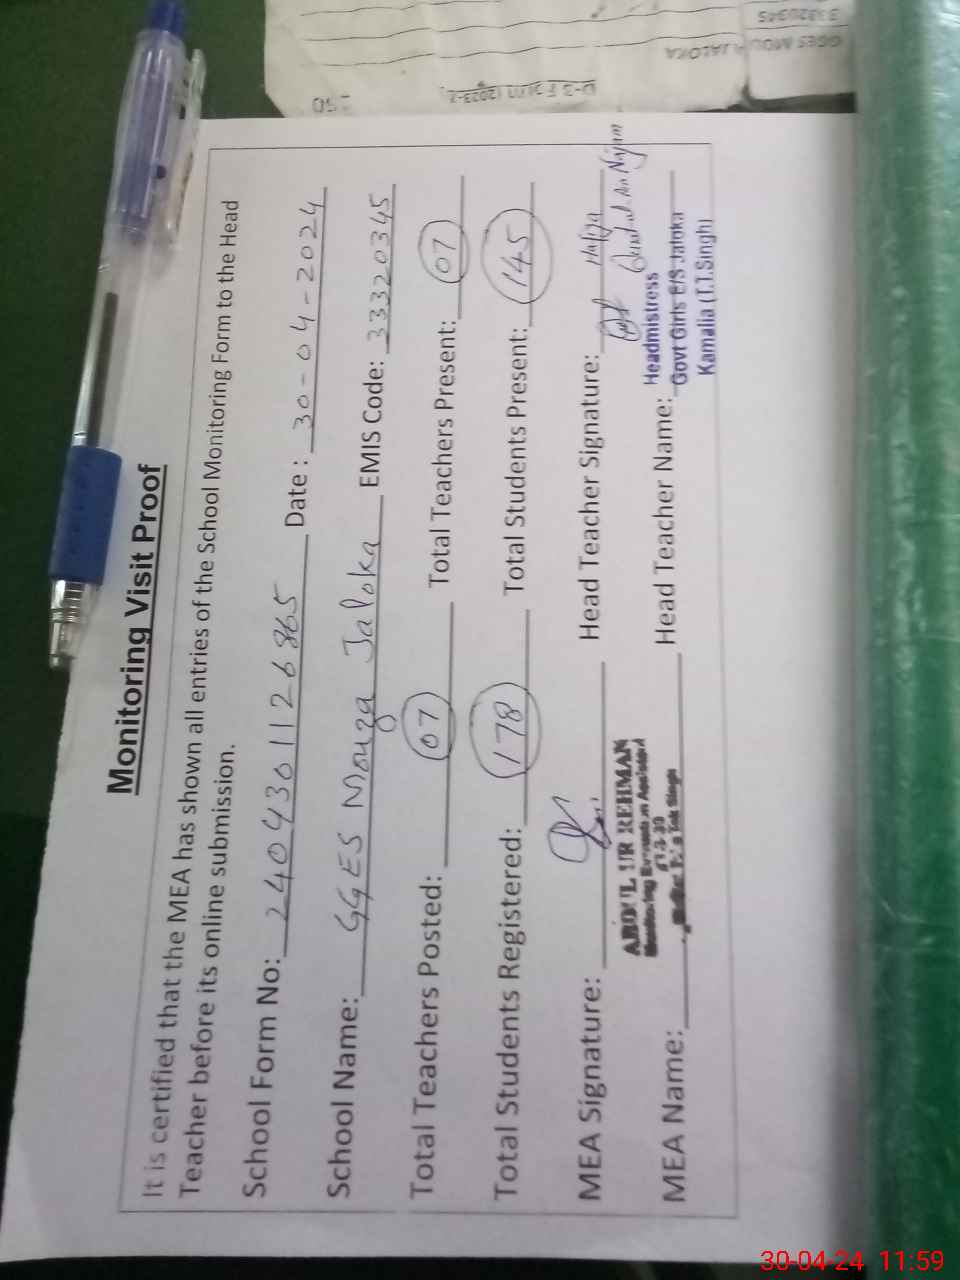 Monitoring Visit Proof
It is certified that the MEA has shown all entries of the School Monitoring Form to the Head
Teacher before its online submission.
School Form No: 2404301126865 Date : 30-04-2024
School Name: GGES Mouza Jaloka EMIS Code: 33320345
Total Teachers Posted: 07 Total Teachers Present: 07
Total Students Registered: 178 Total Students Present: 145
MEA Signature: Head Teacher Signature: Hafiza
ABDUL UR REHMAN
Headmistress
MEA Name: Head Teacher Name: Govt Girls E/S Jaloka
Kamalia (T.T.Singh)
GGES MOU JALOKA
33320345
30-04-24 11:59